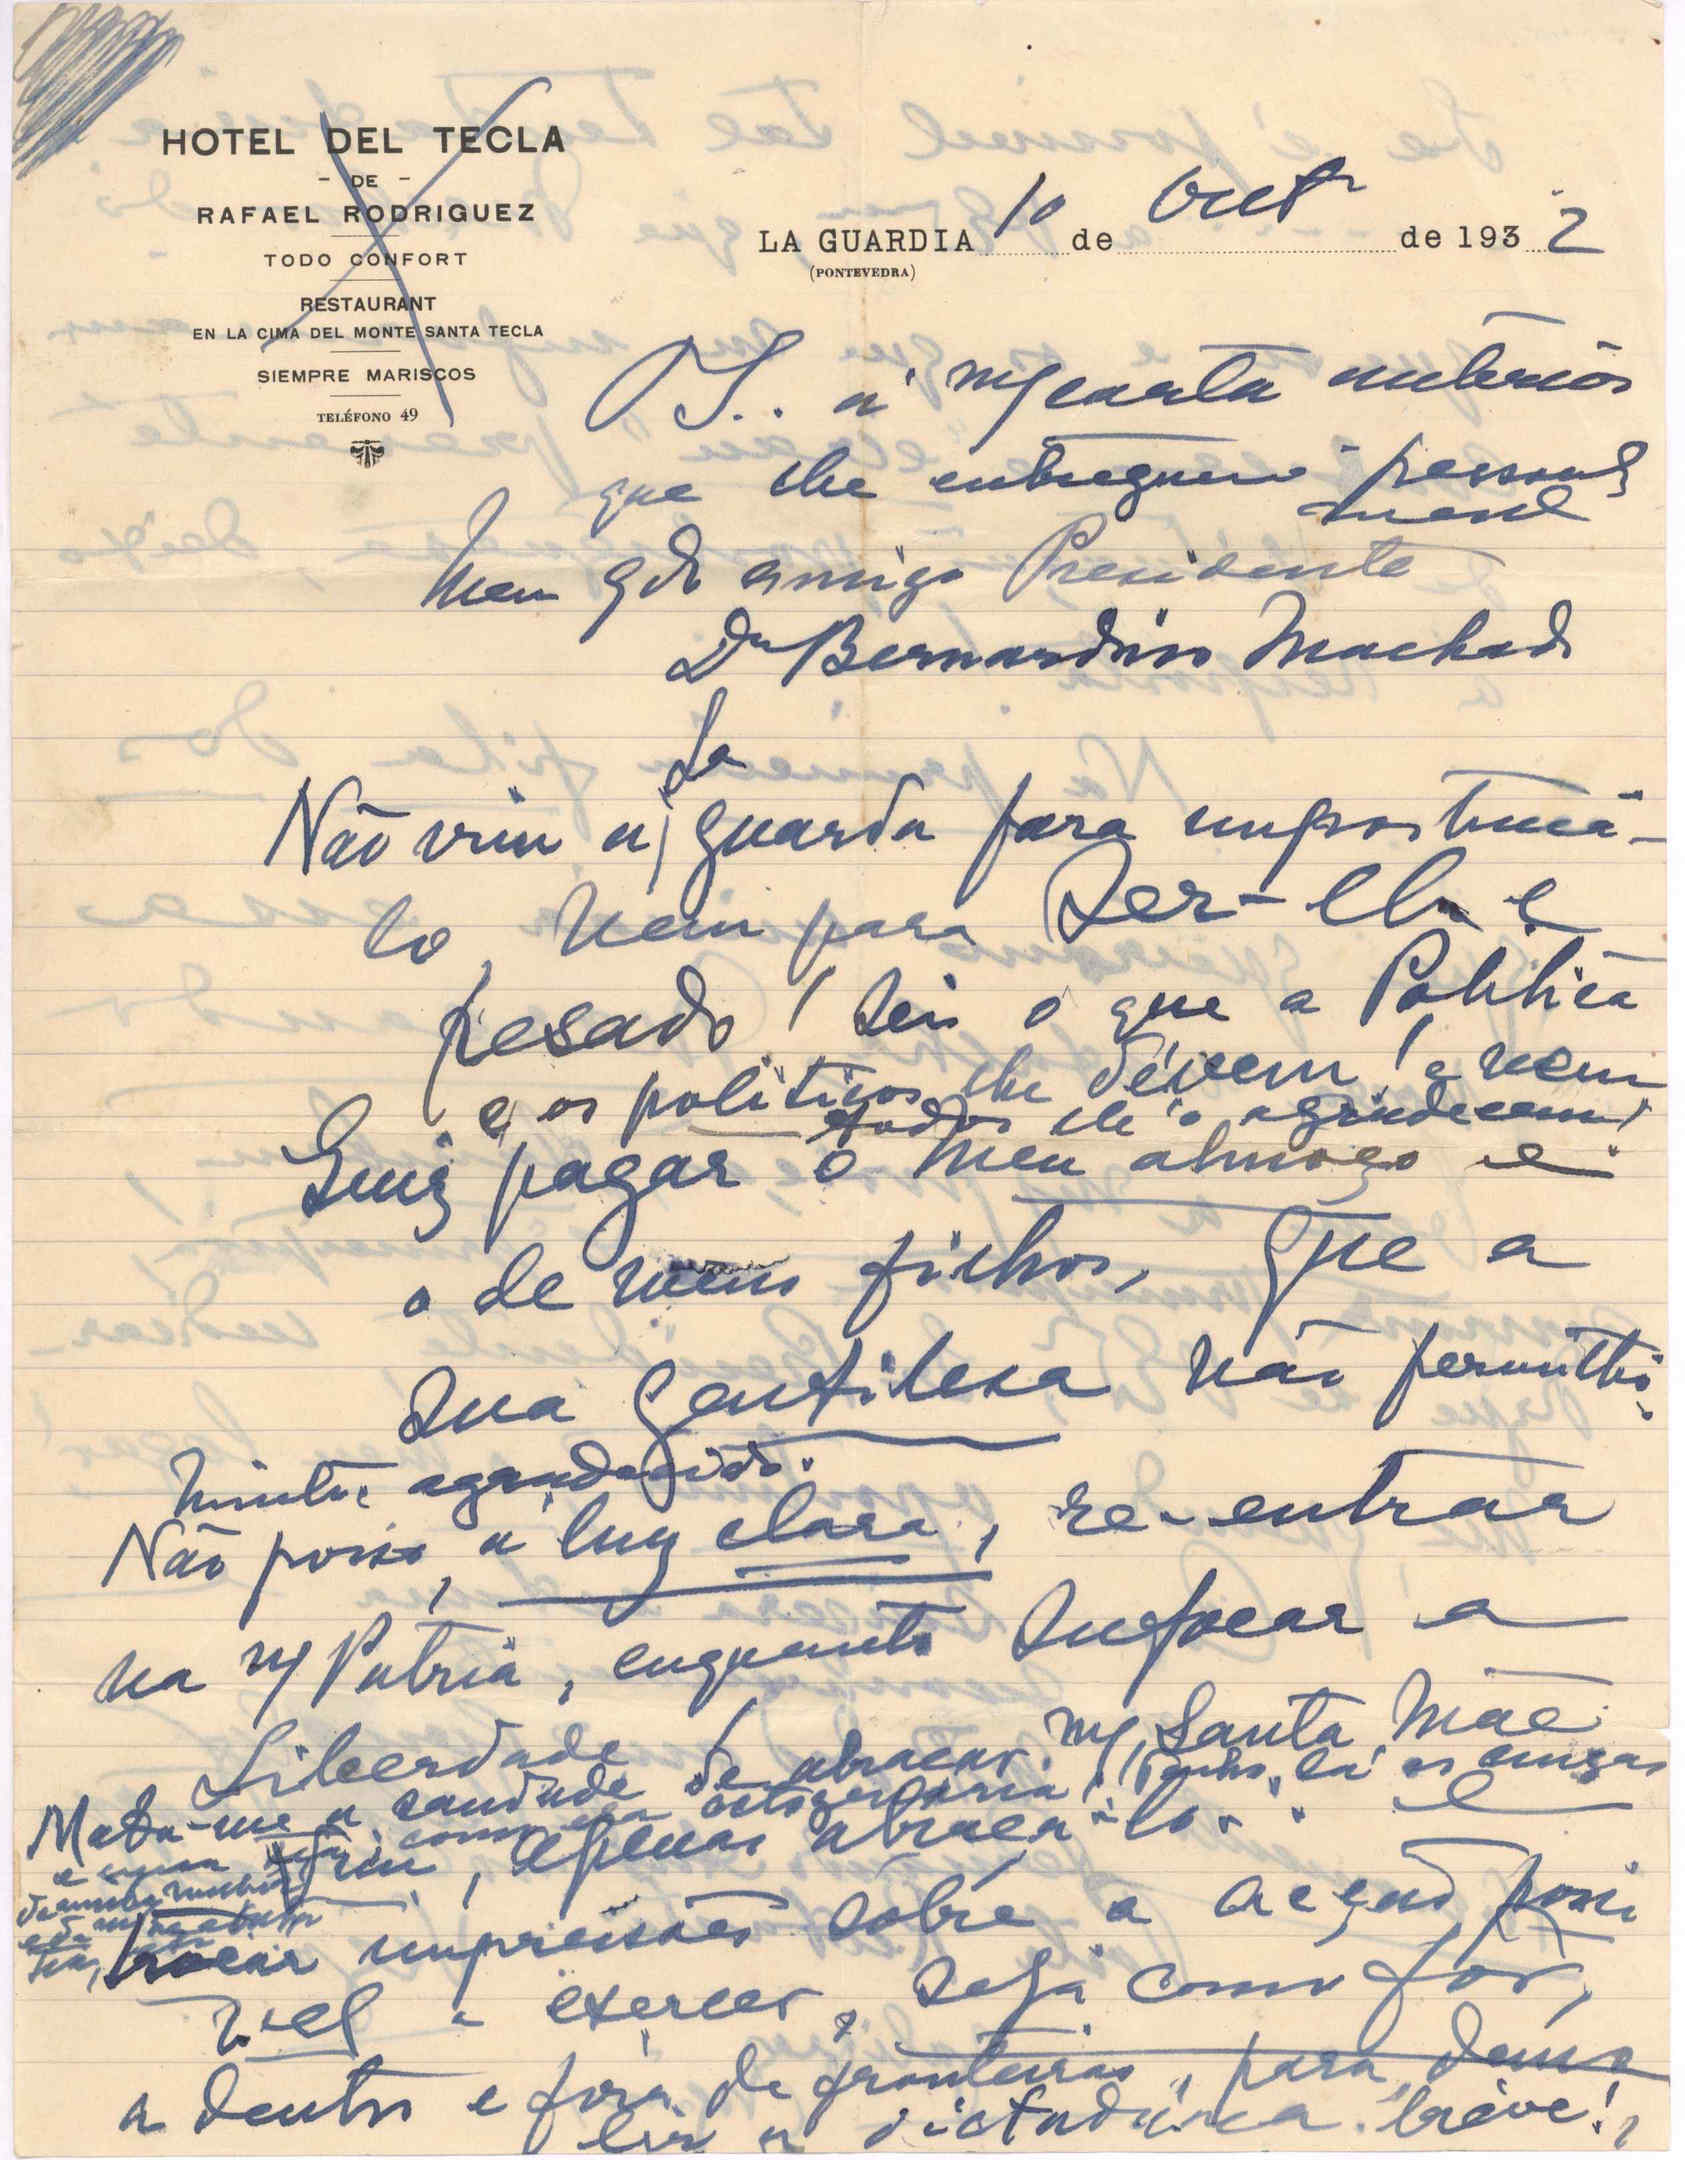 HOTEL DEL TECLA
- DE -
RAFAEL RODRIGUEZ
TODO CONFORT
RESTAURANT
EN LA CIMA DEL MONTE SANTA TECLA
SIEMPRE MARISCOS
TELÉFONO 49
LA GUARDIA 10 de Outr de 1932
(PONTEVEDRA)
P.S.. á m/ carta anterior
que lhe entreguei pessoal
mente
Meu qdo amigo Presidente
Dr Bernardino Machado
La
Não vim a guarda para importuná-
lo, nem para ser-lhe
pesado! Sei o que a Politica
e os politicos lhe dévem! e nem
todos lh'o agradecem!
Quiz pagar o meu almoço e
o de meus filhos, que a
sua gentilesa não permittiu.
Muito agradecido.
Não posso, á luz clara, re-entrar
na m/ Patria, enquanto sufocar a
Liberdade de abraçar m/ Santa Mãe
Mata-me a saudade
octogenaria! (Tenho lá as cinzas
e uma
Vim, apenas abraça-lo.. e
da minha mulher
trocar impressões sobre a acção possi
vel a exercer, seja como fôr,
a dentro e fóra de fronteiras, para demo
lir a dictadura. breve!